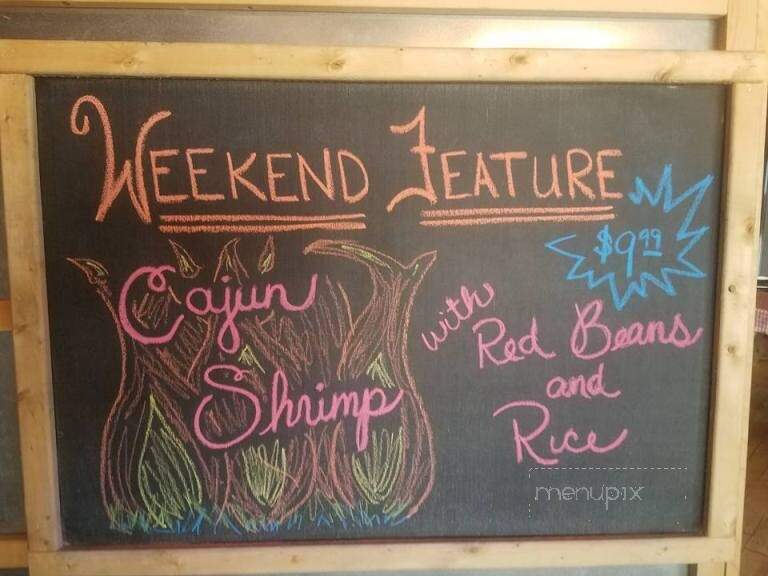 WEEKEND FEATURE
$9.99
Cajun
Shrimp
with
Red Beans
and
Rice
menupix